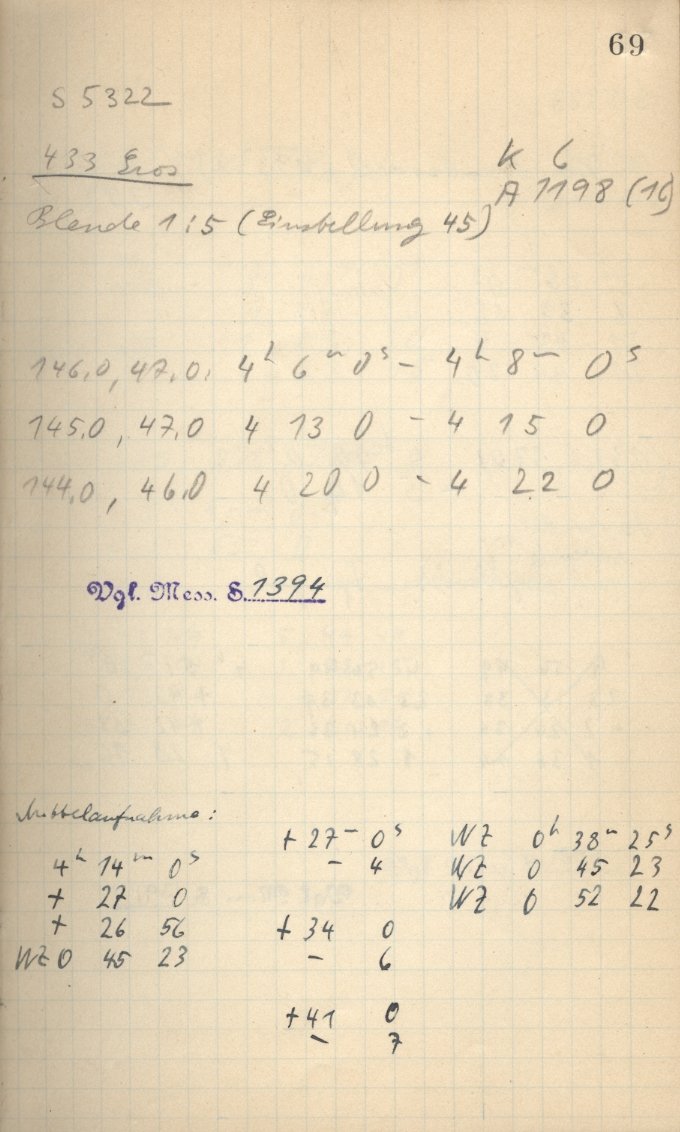 69
S 5322
433 Eros
K 6
A 1198 (16)
Blende 1:5 (Einstellung 45)
146.0, 47.0. 4h 6m 0s - 4h 8m 0s
145.0, 47.0 4 13 0 - 4 15 0
144.0, 46.0 4 20 0 - 4 22 0
Vgl. Mess. S. 1394
Mittelaufnahme:
4h 14m 0s
+ 27 0
+ 26 56
WZ 0 45 23
+ 27m 0s
- 4
+ 34 0
- 6
+ 41 0
- 7
WZ 0h 38m 25s
WZ 0 45 23
WZ 0 52 22